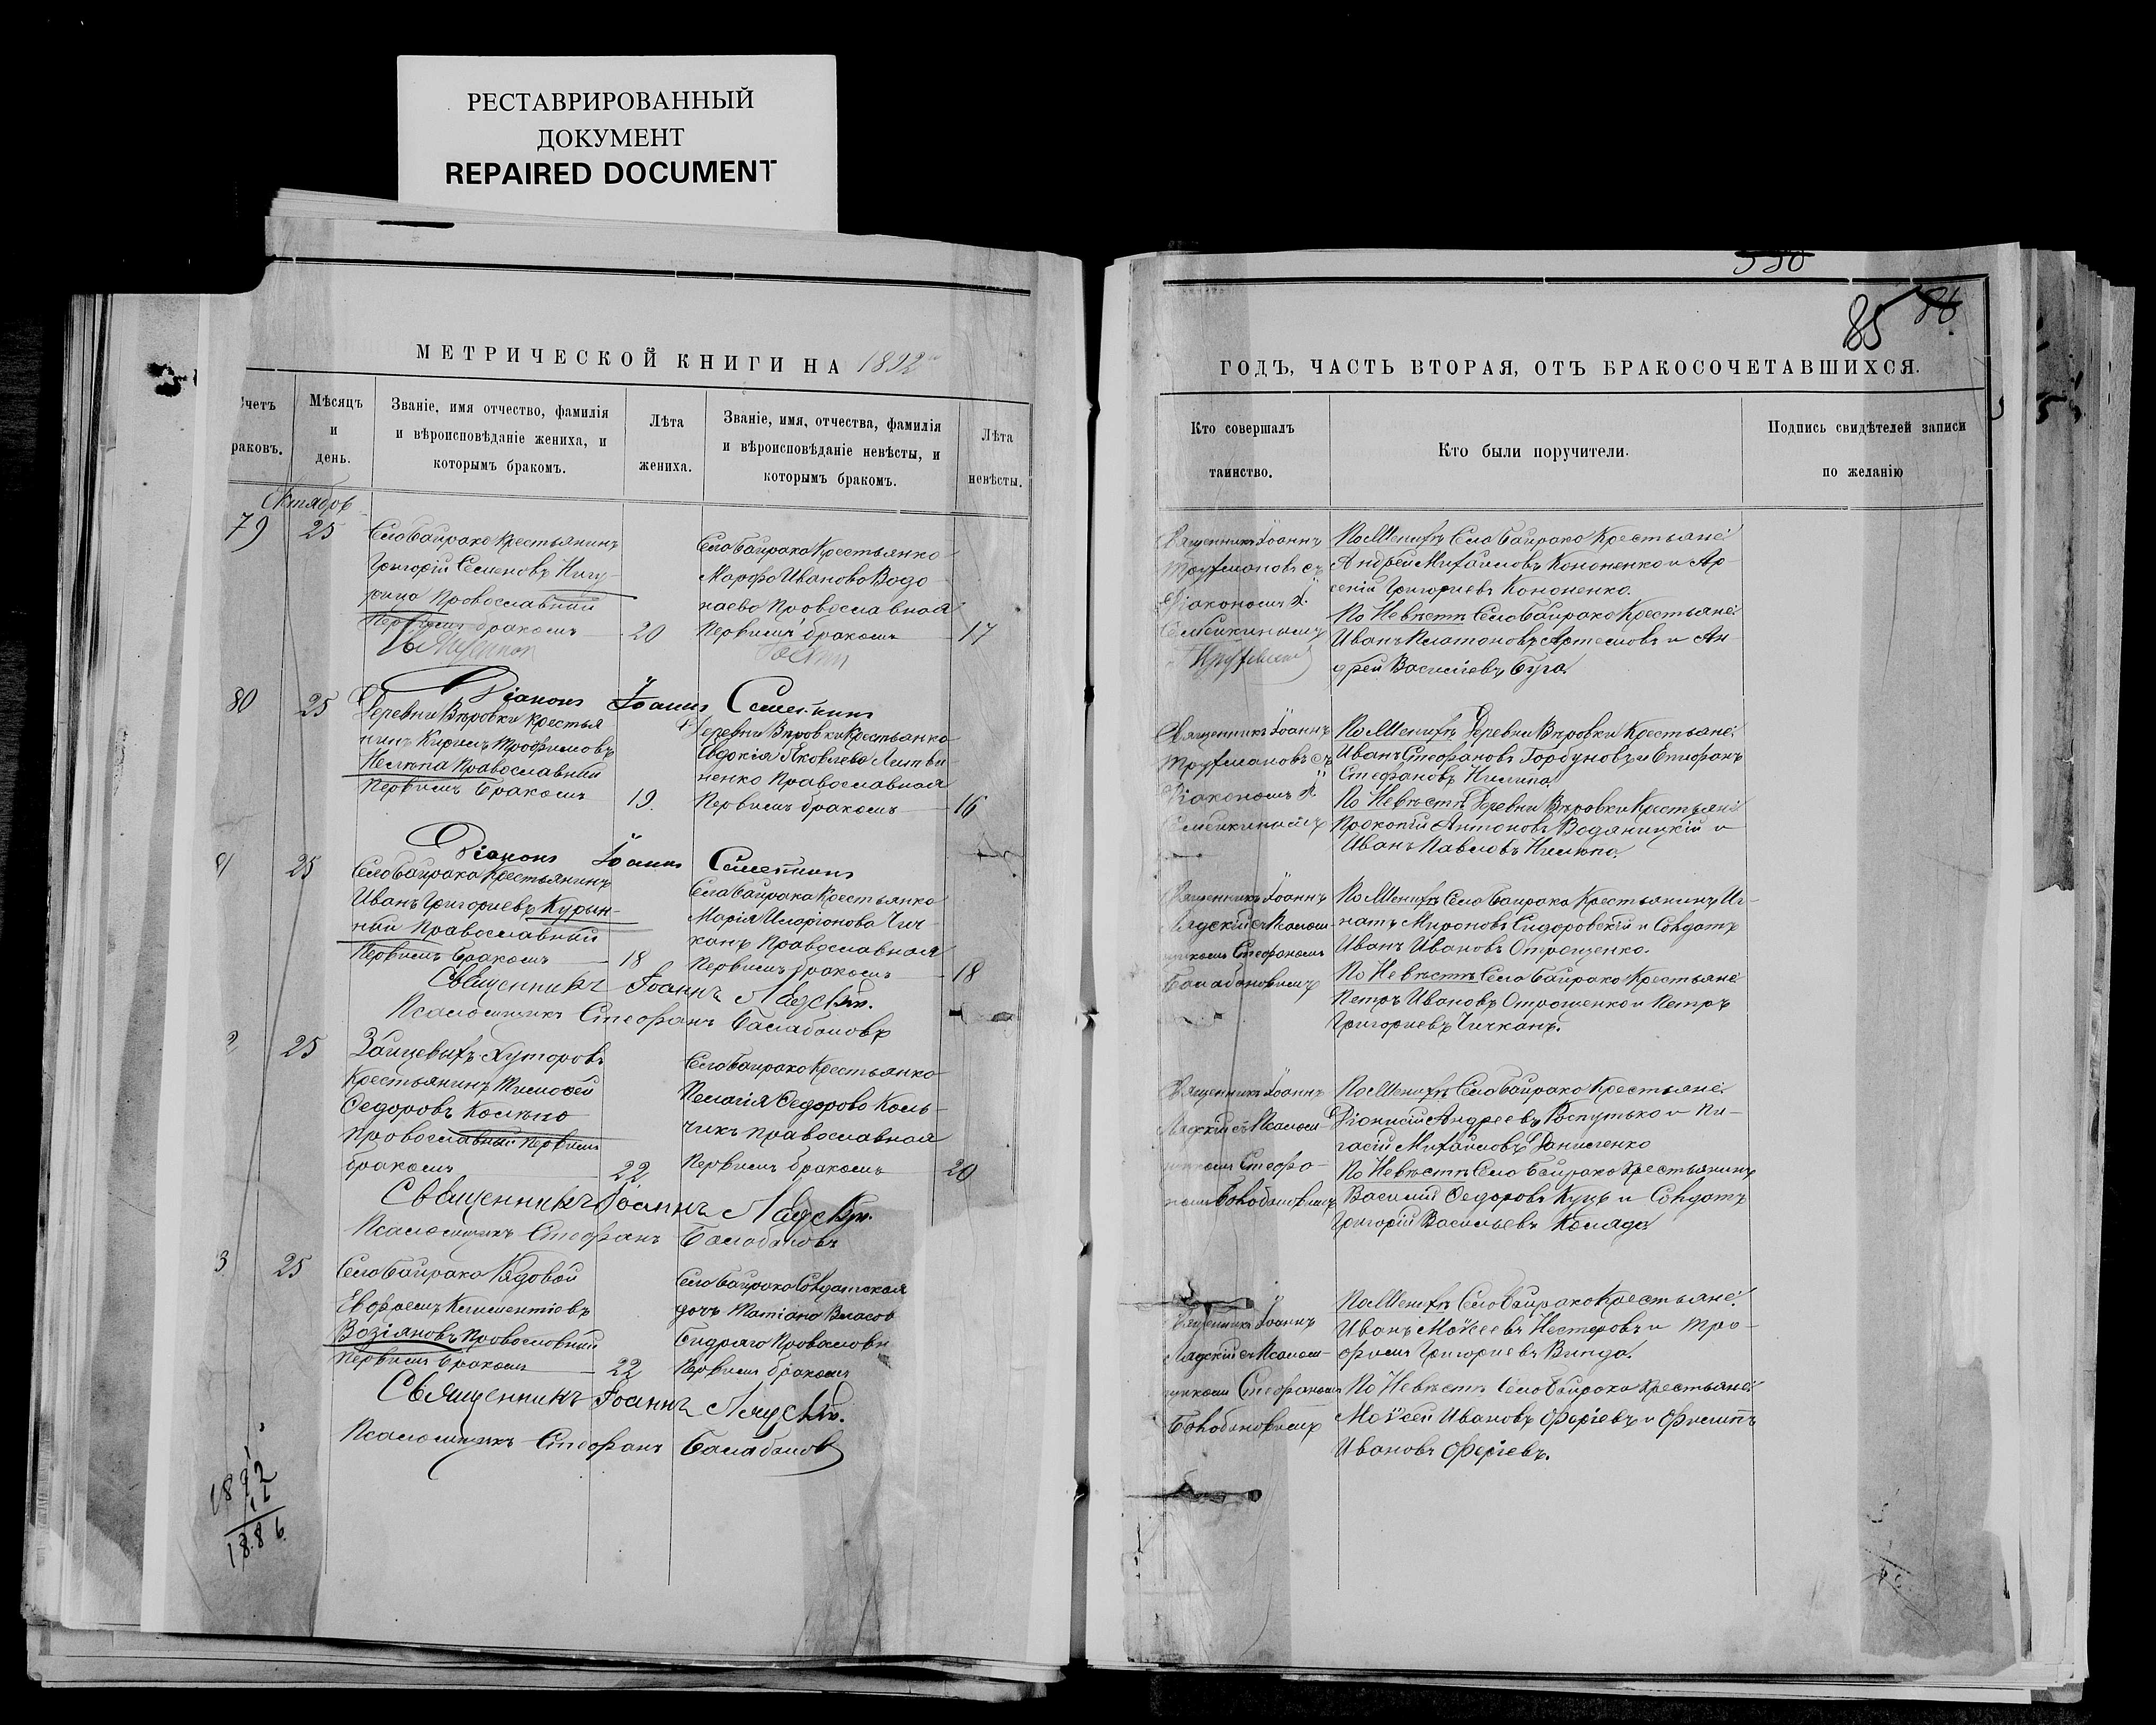 РЕСТАВРИРОВАННЫЙ
ДОКУМЕНТ
REPAIRED DOCUMENT
МЕТРИЧЕСКОЙ КНИГИ НА 1892
Счетъ
браковъ.
Мѣсяцъ
и
день.
Званіе, имя отчество, фамилія
и вѣроисповѣданіе жениха, и
которымъ бракомъ.
Лѣта
жениха.
Званіе, имя, отчества, фамилія
и вѣроисповѣданіе невѣсты, и
которымъ бракомъ.
Лѣта
невѣсты.
Октябрь
79 25
Села Байрака Крестьянинъ
Григорій Семеновъ
Православный
Первымъ бракомъ 20
Села Байрака Крестьянка
Марфа Иванова Водо-
наева Православная
Первымъ бракомъ 17
Діаконъ Іоаннъ
80 25
Деревни Вѣровки Крестья
нинъ Кирилъ Трофимовъ
Православный
Первымъ бракомъ 19.
Деревни Вѣровки Крестьянка
Евдокія Яковлева Литви-
ненко Православная
Первымъ бракомъ 16
Діаконъ Іоаннъ
25
Села Байрака Крестьянинъ
Иванъ Григорьевъ Курин-
ный Православный
Первымъ бракомъ 18
Села Байрака Крестьянка
Марія Иларіонова Чич-
канъ Православная
Первымъ бракомъ 18
Священникъ Іоаннъ Лядскій.
Псаломщикъ Стефанъ Балабановъ
2 25
Зайцевыхъ Хуторовъ
Крестьянинъ Тимофей
Федоровъ
Православный Первымъ
бракомъ 22.
Села Байрака Крестьянка
Пелагія Федорова Коль-
чикъ Православная
Первымъ бракомъ 20
Священникъ Іоаннъ Лядскій.
Псаломщикъ Стефанъ Балабановъ
3 25
Села Байрака Рядовой
Ефремъ Климентіевъ
Возіяновъ Православный
Первымъ бракомъ 22
Села Байрака Солдатская
дочь Татіана Власов
Православн
Первымъ бракомъ
Священникъ Іоаннъ Лядскій.
Псаломщикъ Стефанъ Балабановъ
1892
12
1886.
85 86
ГОДЪ, ЧАСТЬ ВТОРАЯ, ОТЪ БРАКОСОЧЕТАВШИХСЯ.
Кто совершалъ
таинство.
Кто были поручители.
Подпись свидѣтелей записи
по желанію
Священникъ Іоаннъ
Діакономъ І.
По Женихѣ Села Байрака Крестьяне:
Андрей Михайловъ Кононенко и Ар-
сеній Григорьевъ Кононенко.
По Невѣстѣ Села Байрака Крестьяне:
Иванъ Платоновъ Артемовъ и Ан-
дрей Васильевъ Буга.
Священникъ Іоаннъ
Діакономъ І
По Женихѣ Деревни Вѣровки Крестьяне:
Иванъ Стефановъ Горбуновъ и
Стефановъ
По Невѣстѣ Деревни Вѣровки Крестьяне
Прокопій Антоновъ Водяницкій и
Иванъ Павловъ
Священникъ Іоаннъ
Лядскій съ Псалом-
щикомъ Стефаномъ
Балабановымъ
По Женихѣ Села Байрака Крестьянинъ Иг-
натъ Мироновъ Сидоровскій и Солдатъ
Иванъ Ивановъ Отрощенко.
По Невѣстѣ Села Байрака Крестьяне
Петръ Ивановъ Отрошенко и Петръ
Григорьевъ Чичканъ.
Священникъ Іоаннъ
Лядскій съ Псалом-
щикомъ Стефа-
номъ Балабановымъ
По Женихѣ Села Байрака Крестьяне:
Діонисій Андреевъ Роспутько и
Михайловъ Даниленко
По Невѣстѣ Села Байрака Крестьянинъ
Василій Федоровъ Куцъ и Солдатъ
Григорій Васильевъ Коляда.
Священникъ Іоаннъ
Лядскій съ Псалом-
щикомъ Стефаномъ
Балабановымъ
По Женихѣ Села Байрака Крестьяне:
Иванъ Моисеевъ Нестеровъ и Тро-
фимъ Григорьевъ Винда.
По Невѣстѣ Села Байрака Крестьяне:
Моисей Ивановъ и Филиппъ
Ивановъ